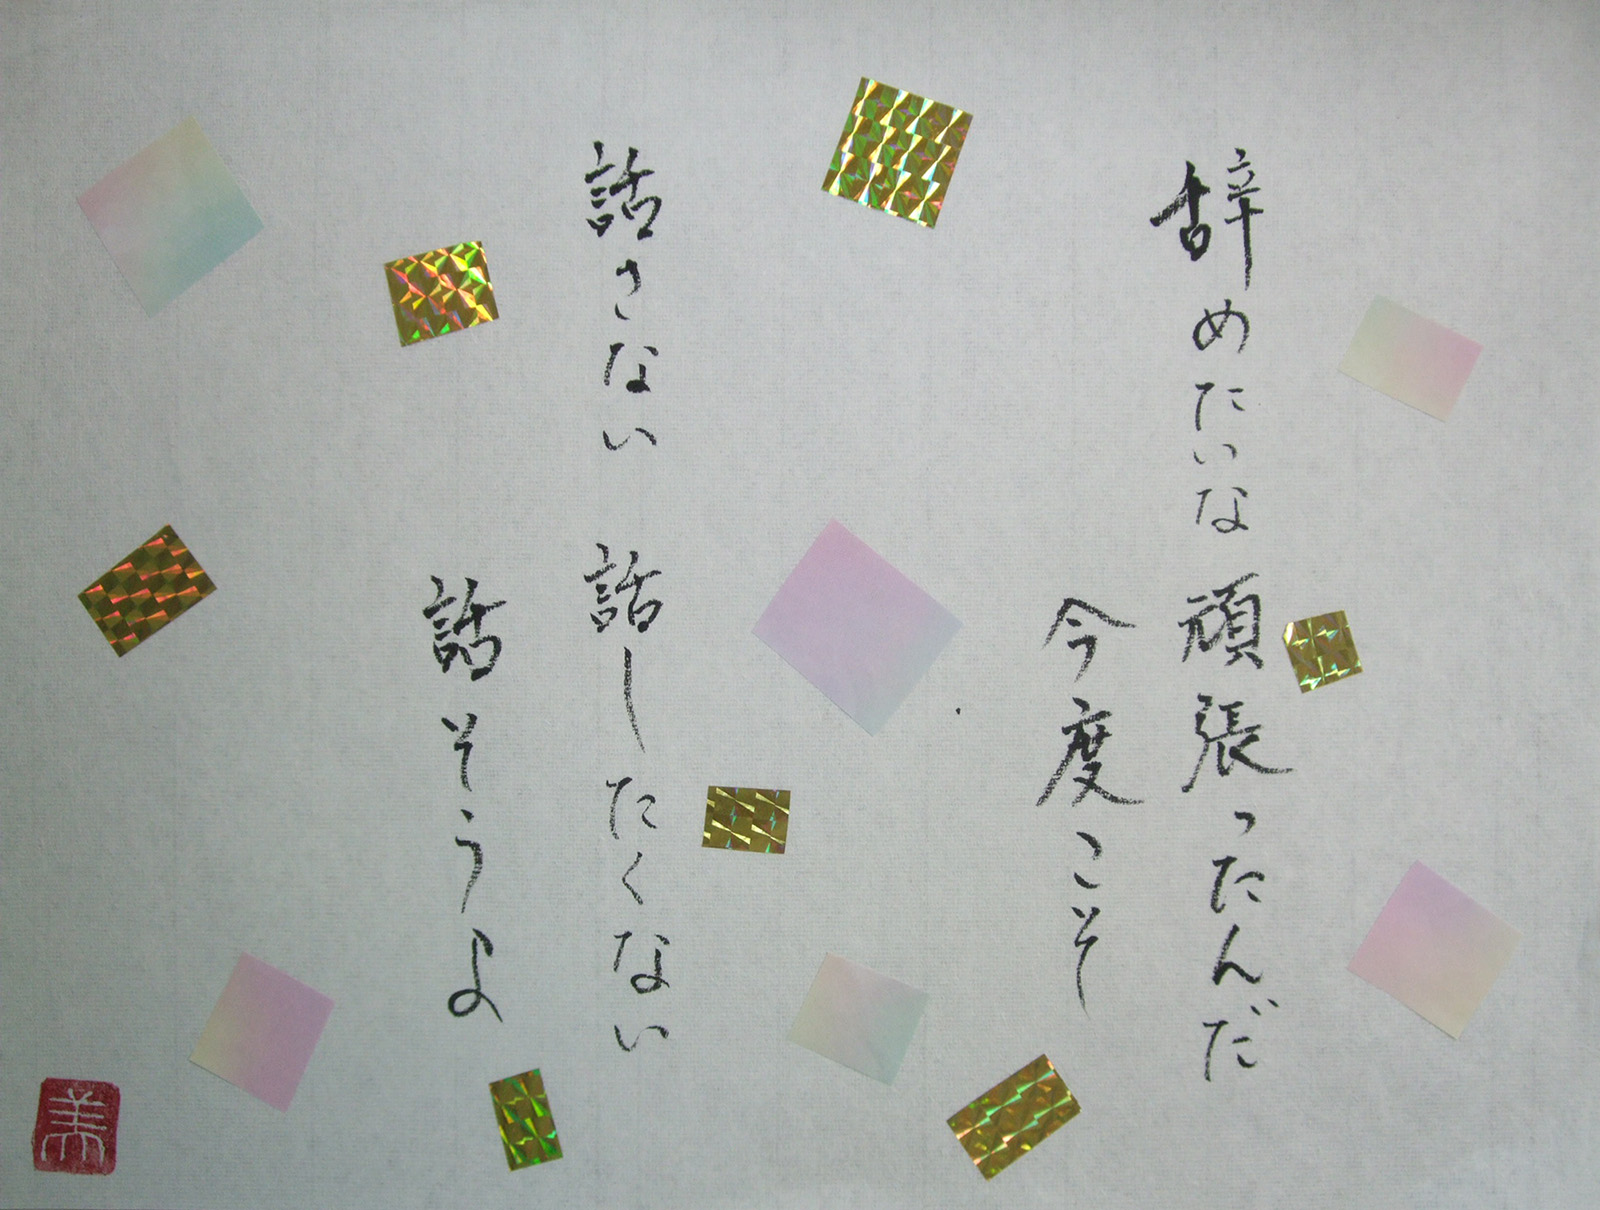 辞めたいな 頑張ったんだ
今度こそ
話さない 話したくない
話そうよ
美